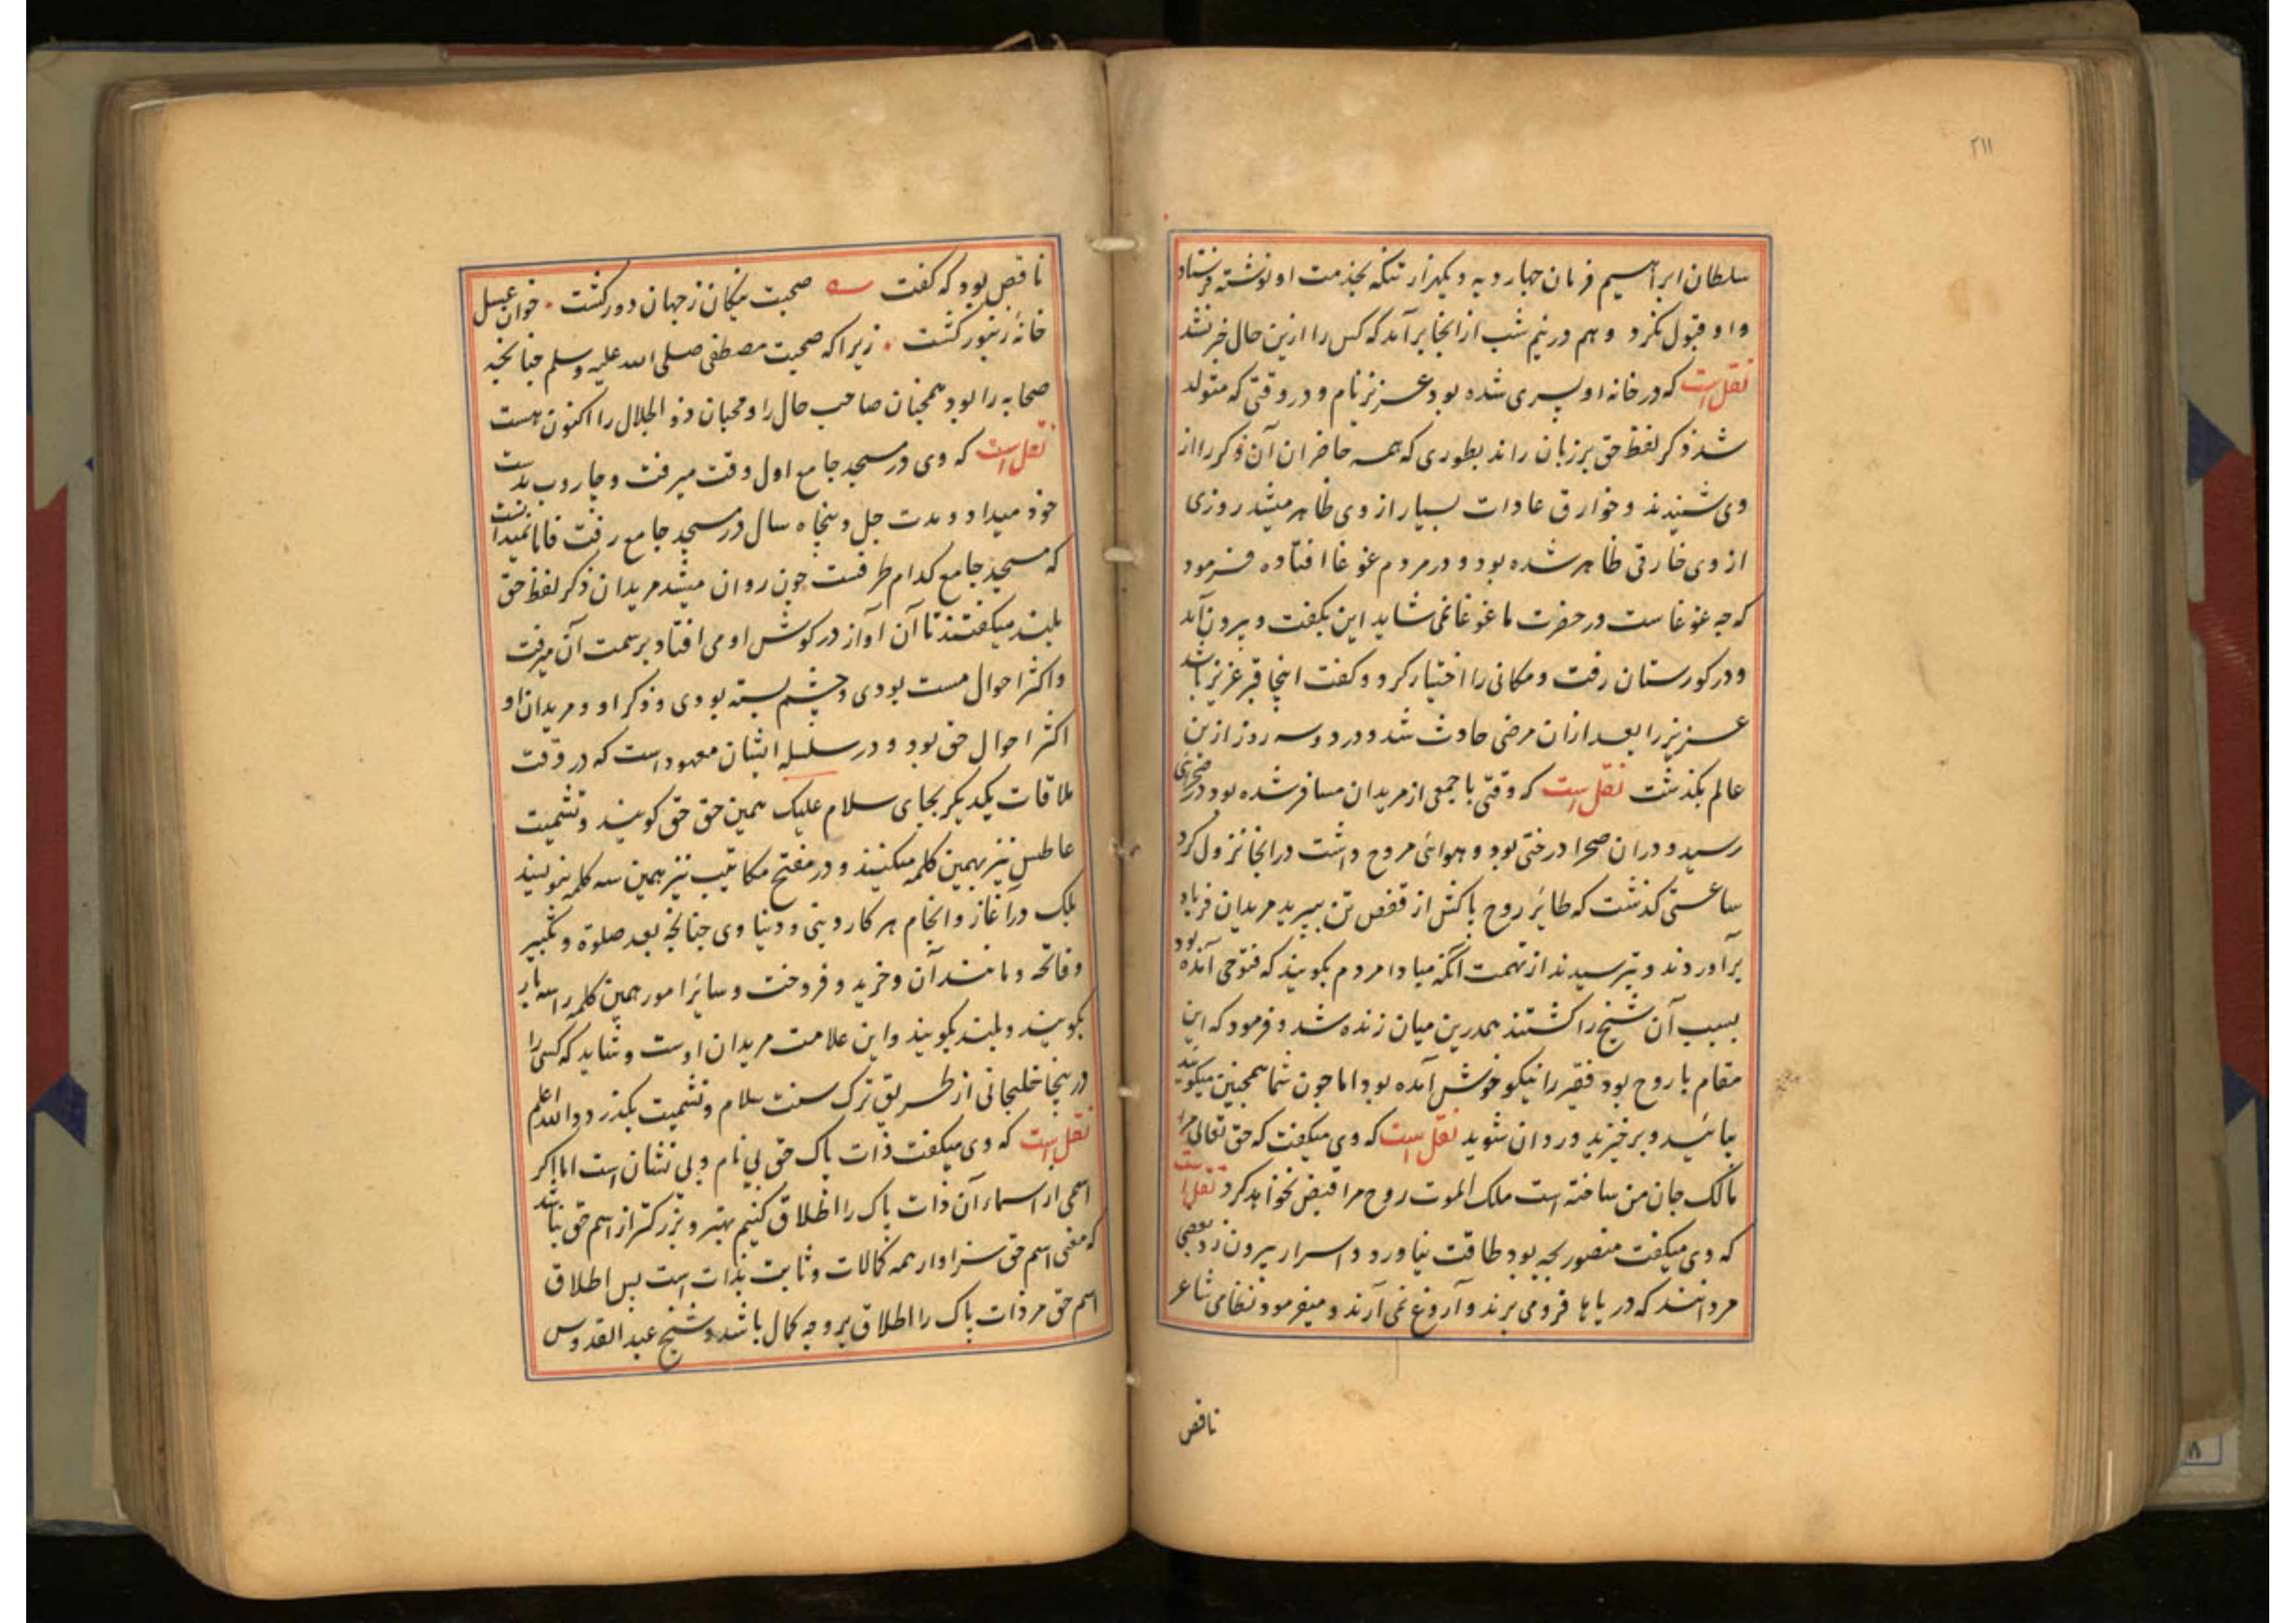 ۲۱۱
سلطان ابراهیم فرمان چهار دیه و یکهزار تنکه بخدمت او نوشته فرستاد
و او قبول نکرد و هم در نیم شب از انجا برآمد که کس را ازین حال خبر نشد
نقل است که در خانه او پسری شده بود عزیز نام و در وقتی که متولد
شد ذکر لفظ حق بر زبان راند بطوری که همه حاضران آن ذکر را از
وی شنیدند و خوارق عادات بسیار از وی ظاهر میشد روزی
از وی خارقی ظاهر شده بود و در مردم غوغا افتاده فرمود
که چه غوغاست در حضرت ما غوغا نمی شاید این بکفت و بیرون آمد
و در کورستان رفت و مکانی را اختیار کرد و کفت اینجا قبر عزیز باشد
عزیز را بعد ازان مرضی حادث شد و در دو سه روز ازین
عالم بکذشت نقل است که وقتی با جمعی از مریدان مسافر شده بود در صحرائی
رسید و دران صحرا درختی بود و هوائی مروح داشت در انجا نزول کرد
ساعتی کذشت که طائر روح پاکش از قفص تن بپرید مریدان فریاد
برآوردند و بترسیدند از تهمت آنکه مبادا مردم بکویند که فتوحی آمده بود
بسبب آن شیخ را کشتند همدرین میان زنده شد و فرمود که این
مقام با روح بود فقیر را نیکو خوش آمده بود اما چون شما همچنین میکوئید
بیائید و برخیزید و روان شوید نقل است که وی میکفت که حق تعالی مرا
مالک جان من ساخته است ملک الموت روح مرا قبض نخواهد کرد نقل است
که وی میکفت منصور بچه بود طاقت نیاورد و اسرار بیرون زد بعضی
مردانند که دریاها فرو می برند و آروغ نمی آرند و میفرمود نظامی شاعر
ناقص
ناقص بود که کفت صحبت نیکان ز جهان دور کشت • خوان عسل
خانۀ زنبور کشت • زیرا که صحبت مصطفی صلی الله علیه وسلم چنانچه
صحابه را بود همچنان صاحب حال را و محبان ذو الجلال را اکنون هست
نقل است که وی در مسجد جامع اول وقت میرفت و جاروب بدست
خود میداد و مدت چل و پنجاه سال در مسجد جامع رفت فاما نمیدانست
که مسجد جامع کدام طرفست چون روان میشد مریدان ذکر لفظ حق
بلند میکفتند تا آن آواز در کوش او می افتاد بر سمت آن میرفت
و اکثر احوال مست بودی و چشم بسته بودی و ذکر او و مریدان او
اکثر احوال حق بود و در سلسله ایشان معهود است که در وقت
ملاقات یکدیکر بجای سلام علیک همین حق حق کویند و تشمیت
عاطس نیز بهمین کلمه میکنند و در مفتح مکاتیب نیز همین سه کلمه بنویسند
بلک در آغاز و انجام هر کار دینی و دنیاوی چنانچه بعد صلوة و تکبیر
و فاتحه و مانند آن و خرید و فروخت و سائر امور همین کلمه را سه بار
بکویند و بلند بکویند و این علامت مریدان اوست و شاید که کسی را
در ینجا خلیجانی از طریق ترک سنت سلام و تشمیت بکذرد والله اعلم
نقل است که وی میکفت ذات پاک حق بی نام و بی نشان است اما اکر
اسمی از اسماء آن ذات پاک را اطلاق کنیم بهتر و بزرکتر از اسم حق نباشد
که معنی اسم حق سزاوار همه کمالات و ثابت بذات است پس اطلاق
اسم حق مر ذات پاک را اطلاق بر وجه کمال باشد و شیخ عبد القدوس
۸